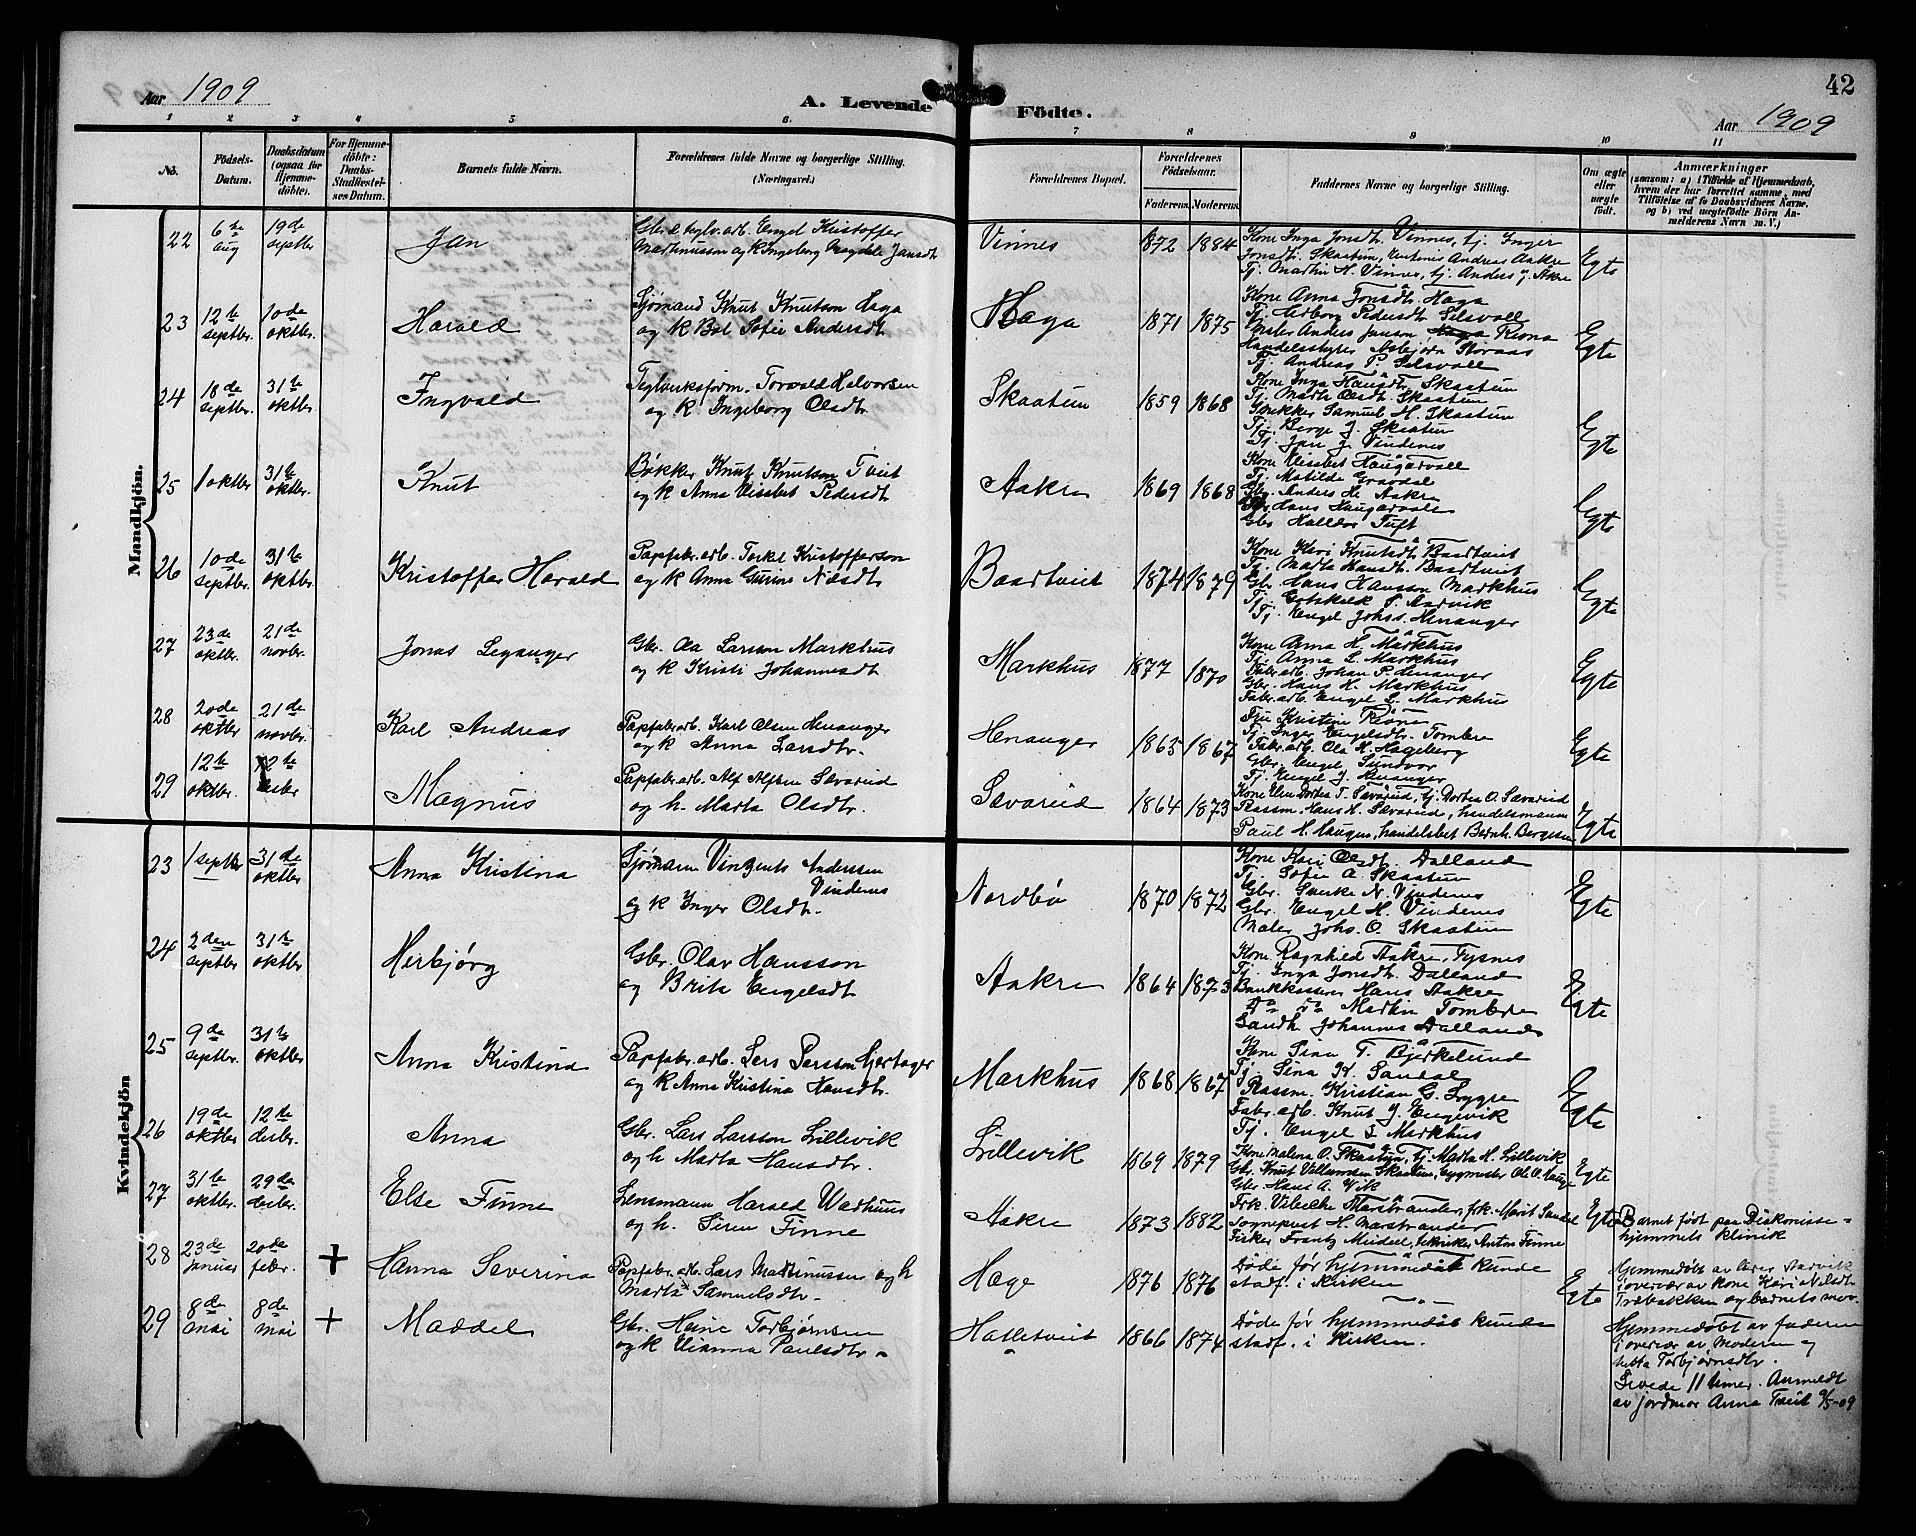 Aar 1909
A. Levende Födte.
Aar 1909
42
1 2 3 4 5 6 7 8 9 10 11
No.
Födsels-Datum.
Daabsdatum (ogsaa for Hjemmedöbte).
For Hjemmedöbte: Daabs-Stadfæstelses Datum.
Barnets fulde Navn.
Forældrenes fulde Navne og borgerlige Stilling. (Næringsvei.)
Forældrenes Bopæl.
Forældrenes Födselsaar.
Faderens. Moderens.
Faddernes Navne og borgerlige Stilling.
Om ægte eller uægte födt.
Anmærkninger
(saasom: a) i Tilfælde af Hjemmedaab, hvem der har forrettet samme, med Tilföielse af to Daabsvidners Navne, og b) ved uægtefödte Börn Anmelderens Navn m. V.)
Mandkjön.
22 6te aug 19de septbr Jan
Engel Kristoffer
Marthinussen og k Ingeborg Magdele Jansdt
Vinnes 1872 1884
Kone Inga Jonsdtr. Vinnes, tj. Inger
Jonsdt. Skaatun, Andreas Aakre
Tj. Martin H. Vinnes, tj. Anders J. Akre
Egte
23 12te septbr. 10de oktbr. Harald
Sjømand Knut Knutson Haga
og k Bol Sofie Andersdt
Haga 1871 1875
Kone Anna Jonsdtr. Haga
Tj. Herborg Pedersdt. Selsvoll
Anders Janson Rivna
Asbjørn Storaas
Tj. Andreas P. Selsvoll
Egte
24 18de septbr. 31te oktbr. Ingvald
Teglverksform. Torvald Halvorsen
og k Ingeborg Olsdt
Skaatun 1859 1868
Kone Inga Hansdtr. Skaatun
Tj. Marta Olsdt. Skaatun
Snekker Samuel H. Skaatun
Tj. Berge J. Skaatun
Tj. Jan J. Vindenes
Egte
25 1 oktbr 31te oktbr. Knut
Bøkker Knut Knutson Tveit
og k Anna Lisabet Pedersdt
Aakre 1869 1868
Kone Lisabet Haugarvoll
Tj. Matilde Gravdal
Gbr. Anders H. Aakre
Hans Haugarvoll
Gbr Halldor Tuft
Egte
26 10de septbr. 31te oktbr. Kristoffer Harald
Papfabr.arb. Torkel Kristofferson
og k Anna Gurine Nilsdt
Baartveit 1874 1879
Kone Kari Knutsdt Baartveit
Tj. Marta Hansdt. Baartveit
Gbr Hans Hansson Markhus
Tj. Gotskalk S. Aarvik
Tj. Engel Johs. Henanger
Egte
27 23de oktbr. 21de novbr. Jonas Leganger
Gbr. Ola Larsson Markhus
og k Kristi Johannesdt
Markhus 1877 1870
Kone Anna H. Markhus
Tj. Anna L. Markhus
Fabr.arb. Johan P. Henanger
Gbr. Hans H. Markhus
Fabr.arb. Engel L. Markhus
Egte
28 20de oktbr 21de novbr. Karl Andreas
Papfabr.arb. Karl Olsen Henanger
og k Anna Larsdtr.
Henanger 1865 1867
Kristine Rivne
Tj. Inger Engelsdtr. Tombre
Fabr.arb. Ola K. Hageberg
Gbr. Engel Sundvor
Tj. Engel J. Henanger
Egte
29 12te oktbr. 12te desbr Magnus
Papfabr.arb. Alf Alfsen Sævareid
og h. Marta Olsdtr.
Sævareid 1864 1873
Kone Elen Dortea T. Sævareid, tj. Dortea O. Sævareid
Passm. Hans H. Sævareid, handelsmann
Paul H. Haugen, handelsbet Bernh. Bergesen
Egte
Kvindekjön
23 1 septbr 31de oktbr Anna Kristina
Sjømann Vinzents Anderssen
Vindenes
og k Inger Olsdtr.
Nordbø 1870 1872
Kone Kari Olsdtr. Dalland
Tj. Sofie A. Skaatun
Gbr. Sverke N. Vindenes
Gbr. Engel H. Vindenes
Maler Johs. O. Skaatun
Egte
24 2den septbr 31te oktbr Herbjørg
Gbr. Olav Hansson
og Brita Engelsdt
Aakre 1864 1873
Kone Ragnhild Aakre, Tysnes
Tj. Inga Jonsdtr. Dalland
Bankkasserer Hans Aakre
Do Do Martin Tombre
Landh. Johannes Dalland
Egte
25 9de septbr. 31te oktbr Anna Kristina
Papfabr.arb. Lars Persson Hjortager
og k Anna Kristina Hansdtr.
Markhus 1868 1867
Kone Sina T. Bjerkelund
Tj. Sina K. Sandal
Passm. Kristian G. Lygre
Fabr.arb. Knut J. Engevik
Tj. Engel L Markhus
Egte
26 19de oktbr 12te desbr. Anna
Gbr. Lars Larsson Lillevik
og h Marta Hansdtr.
Lillevik 1869 1879
Kone Malena O. Skaatun, tj Marta H. Lillevik
Gbr. Knut Villumsen Skaatun, bygmester Ole O. Hauge
Gbr. Hans A. Vik
Egte
27 31te oktbr. 29de desbr. Else Finne
Lensmann Harald Wadhuus
og h. Siren Finne
Aakre 1873 1882
Frk. Vibecke Marstrander, frk. Marit Sandal
Sogneprest H. Marstrander
Fisker Frantz Meidell, tekniker Anton Finne
Egte
Barnet født paa Diakonissehjemmets klinik
28 23de januar 20de febr. + Hanna Severina
Papfabr.arb. Lars Mathinussen og h
Marta Samuelsdtr.
Hage 1876 1876
Døde før hjemmedåb kunde
stadf. i kirken
Egte
Hjemmedøbt av lærer Aarvik
i overvær av kone Kari Nilsdt
Træbakken og barnets mor.
29 8de mai 8de mai + Maddel
Gbr. Heine Torbjørnsen
og k Vianna Paulsdtr.
Hatletveit 1866 1874
Døde før hjemmedåb kunde
stadf. i Kirken.
Hjemmedøbt av faderen
i overvær av Moderen og
Torbjørnsdtr.
Levede 11 timer. Anmeldt
av jordmor Anna Tveit 9/5-09